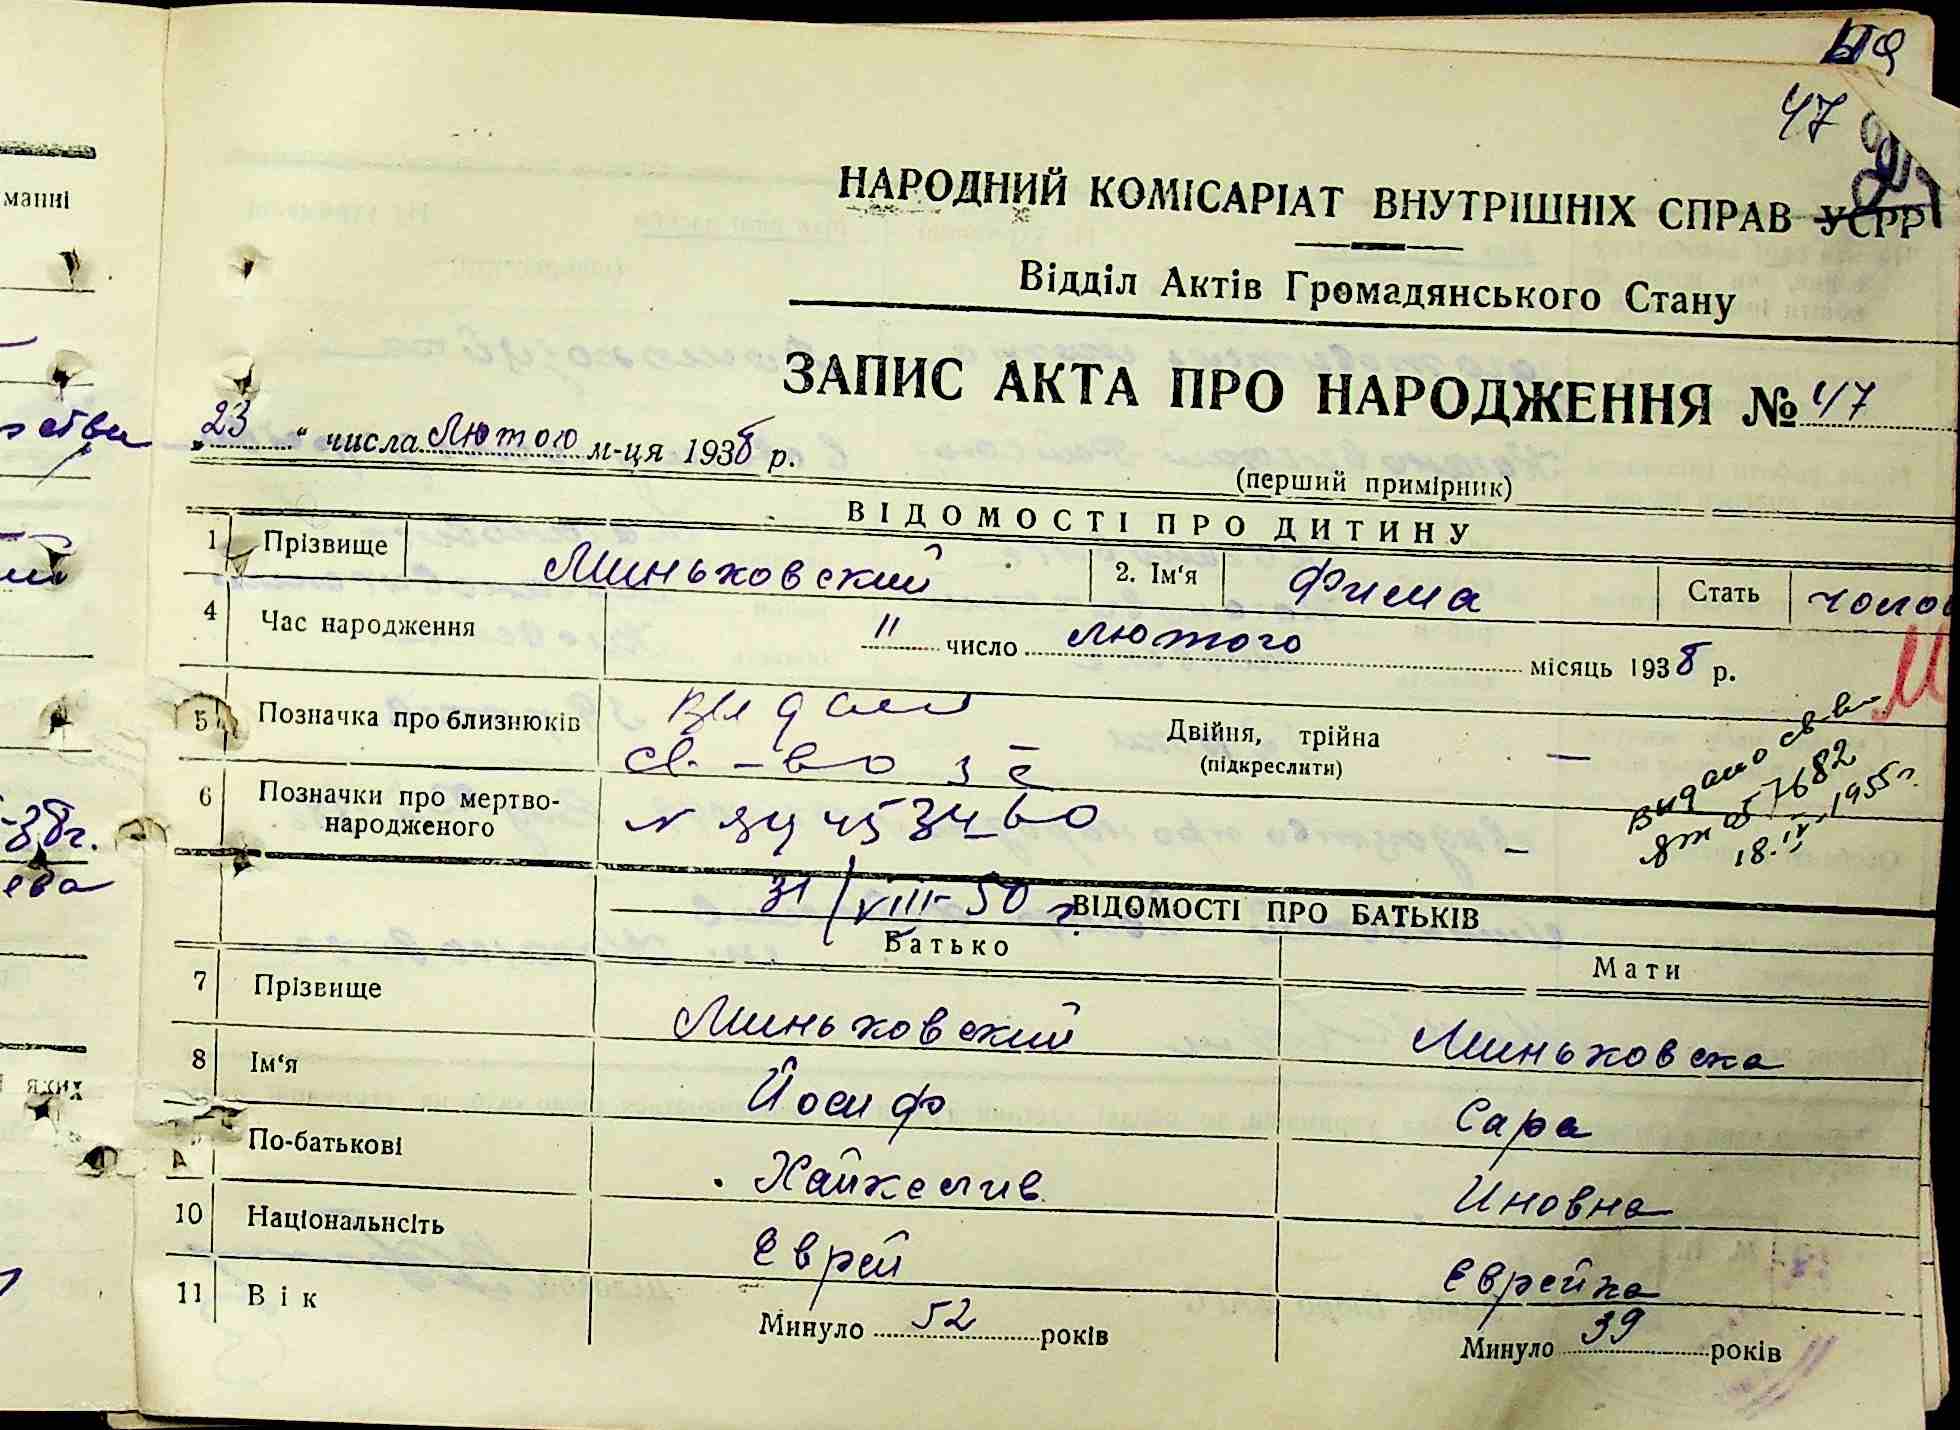 47
НАРОДНИЙ КОМІСАРІАТ ВНУТРІШНІХ СПРАВ УСРР
Відділ Актів Громадянського Стану
ЗАПИС АКТА ПРО НАРОДЖЕННЯ № 47
„23“ числа Лютого м-ця 1938 р.
(перший примірник)
ВІДОМОСТІ ПРО ДИТИНУ
1 Прізвище Миньковский 2. Ім‘я Фима Стать чолов
4 Час народження 11 число лютого місяць 1938 р.
5 Позначка про близнюків Двійня, трійна —
(підкреслити)
видано св-во
св.-во
6 Позначки про мертво-
народженого –
18.IV.1955г.
31/VIII-50 г.
ВІДОМОСТІ ПРО БАТЬКІВ
Батько Мати
7 Прізвище Миньковский Миньковска
8 Ім‘я Йосиф Сара
По-батькові Иновна
10 Національнсіть Єврей Єврейка
11 Вік Минуло 52 років Минуло 39 років
манні
яких